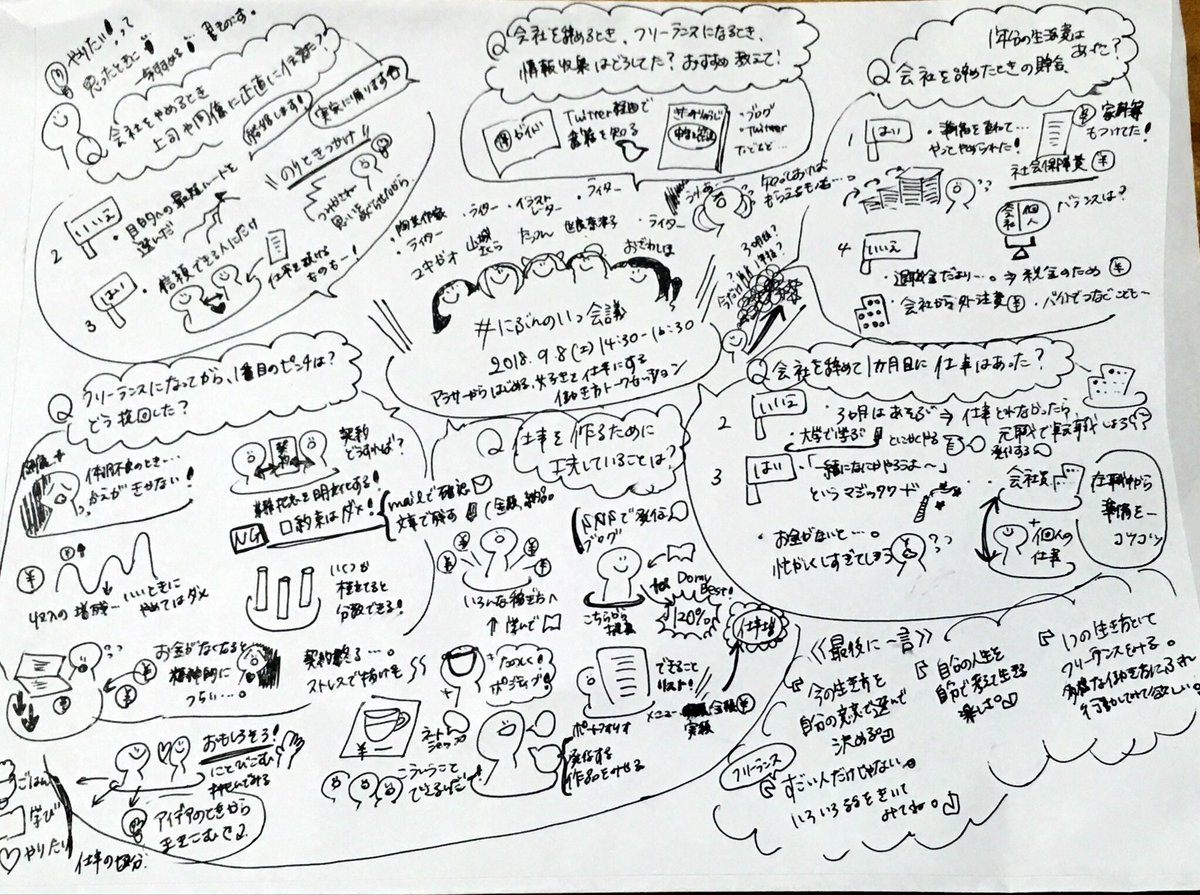 やりたい!って
思ったときに
Q 会社をやめるとき
上司や同僚に正直に伝えた?
結婚します!
実家に帰ります
2 いいえ
・目的への最短ルートを
選んだ
3 はい
・信頼できる人にだけ
仕事を続ける
ものもー!
Q 会社を辞めるとき、フリーランスになるとき、
情報収集はどうした?おすすめ教えて!
Twitter経由で
書籍を知る
・ブログ
・Twitter
などなど…
Q 会社を辞めたときの貯金、
1年分の生活費は
あった?
1 はい
・準備を重ねて…
やってやめられた!
¥ 家計簿
もつけてた!
社会保障費 ¥
会社 個人
バランスは?
4 いいえ
・退職金だより…。⇒税金のため ¥
・会社から外注費 ¥
・陶芸作家
ライター
・ライター
・イラスト
レーター
・ライター
・ライター
ユキガオ
山城
さくら
おざわしほ
#にぶんのいっ会議
2018.9.8(土)14:30-16:30
アラサーからはじめる、好きを仕事にする
働き方トークセッション
Q フリーランスになってから、1番目のピンチは?
どう挽回した?
体調不良のとき…
かえがきかない!
契約
どうすれば?
業務内容を明確化する!
NG 口約束はダメ!
mailで確認
文章で残す
(金額、納品。
いいときに
やめてはダメ
いくつか
柱立てると
分散できる!
お金がなくなると
精神的に
つらい…。
契約終る…。
ストレスで
おもしろそう!
にとびこむ
アイデアのときから
まきこむ
ごはん
学び
やりたい
仕事の切り分け
Q 仕事を作るために
工夫していることは?
SNSで発信
ブログ
いろんな稼ぎ方へ
↑学んで
こちらから
提案
Do my
Best!
120%
仕事増
たのしく!
ポジティブ!
できること
リスト!
メニュー 金額 ¥
実績
ポートフォリオ
発信する
作品をみせる
ネット
ショップ
こういうこと
できるんだけど!
Q 会社を辞めて1か月目に仕事はあった?
2 いいえ
・3か月はあそぶ⇒仕事とれなかったら
元職で転職しよう??
・大学で学ぶ とにかくやる 発信する
3 はい
・「一緒になにかやろうよ〜」
というマジックワード
・お金がないと…。
忙がしくしすぎてしまう
会社員
+個人の
仕事
在職中から
準備を…
コツコツ
《最後に一言》
『今の生き方を
自分の意志で選んで
決める
『自分の人生を
自分で考えて生きる
楽しさ。
『1つの生き方として
フリーランスをする。
フリーランス
『すごい人だけじゃない。
いろいろ話をきいて
みてね。